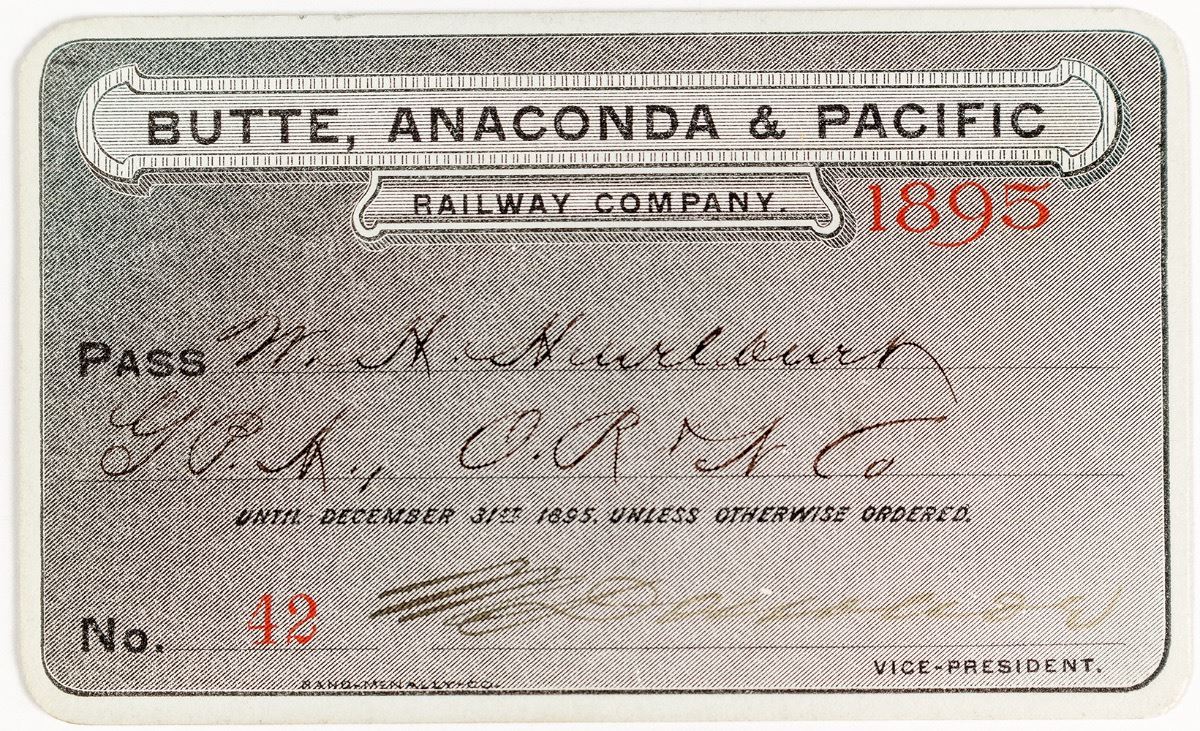 BUTTE, ANACONDA & PACIFIC
RAILWAY COMPANY.
1895
PASS W. H. Hurlburt
G.P.A., O.R. & N Co
UNTIL DECEMBER 31ST 1895. UNLESS OTHERWISE ORDERED.
No. 42
VICE-PRESIDENT.
RAND-MCNALLY & CO.